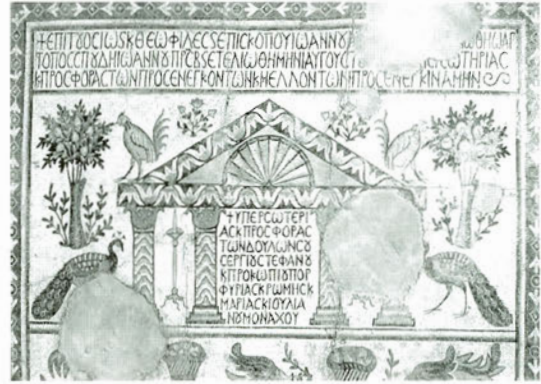 +ΕΠΙΤȢΟCΙΩSΚΘΕΩΦΙΛΕCSΕΠΙCΚΟΠΟΥΙΩΑΝΝȢ
ΤΟΠΟCCΠȢΔΗΙΩΑΝΝȢΠΡCΒSΕΤΕΛΙΩΘΗΜΗΝΙΑΥΓΟΥCΤ CΩΤΗΡΙΑC
ΚΠΡΟCΦΟΡΑCΤΩΝΠΡΟCΕΝΕΓΚΟΝΤΩΝΚΗΕΛΛΟΝΤΩΝΠΡΟCΕΝΕΓΚΙΝΑΜΗΝ
+ΥΠΕΡCΩΤΕΡΙ
ΑCΚΠΡΟCΦΟΡΑC
ΤΩΝΔΟΥΛΩΝCȢ
CΕΡΓΙȢCΤΕΦΑΝȢ
ΚΠΡΟΚΩΠΙȢΠΟΡ
ΦΥΡΙΑCΚΡΩΜΗCΚ
ΜΑΡΙΑCΚΙΟΥΛΙΑ
ΝȢΜΟΝΑΧΟΥ